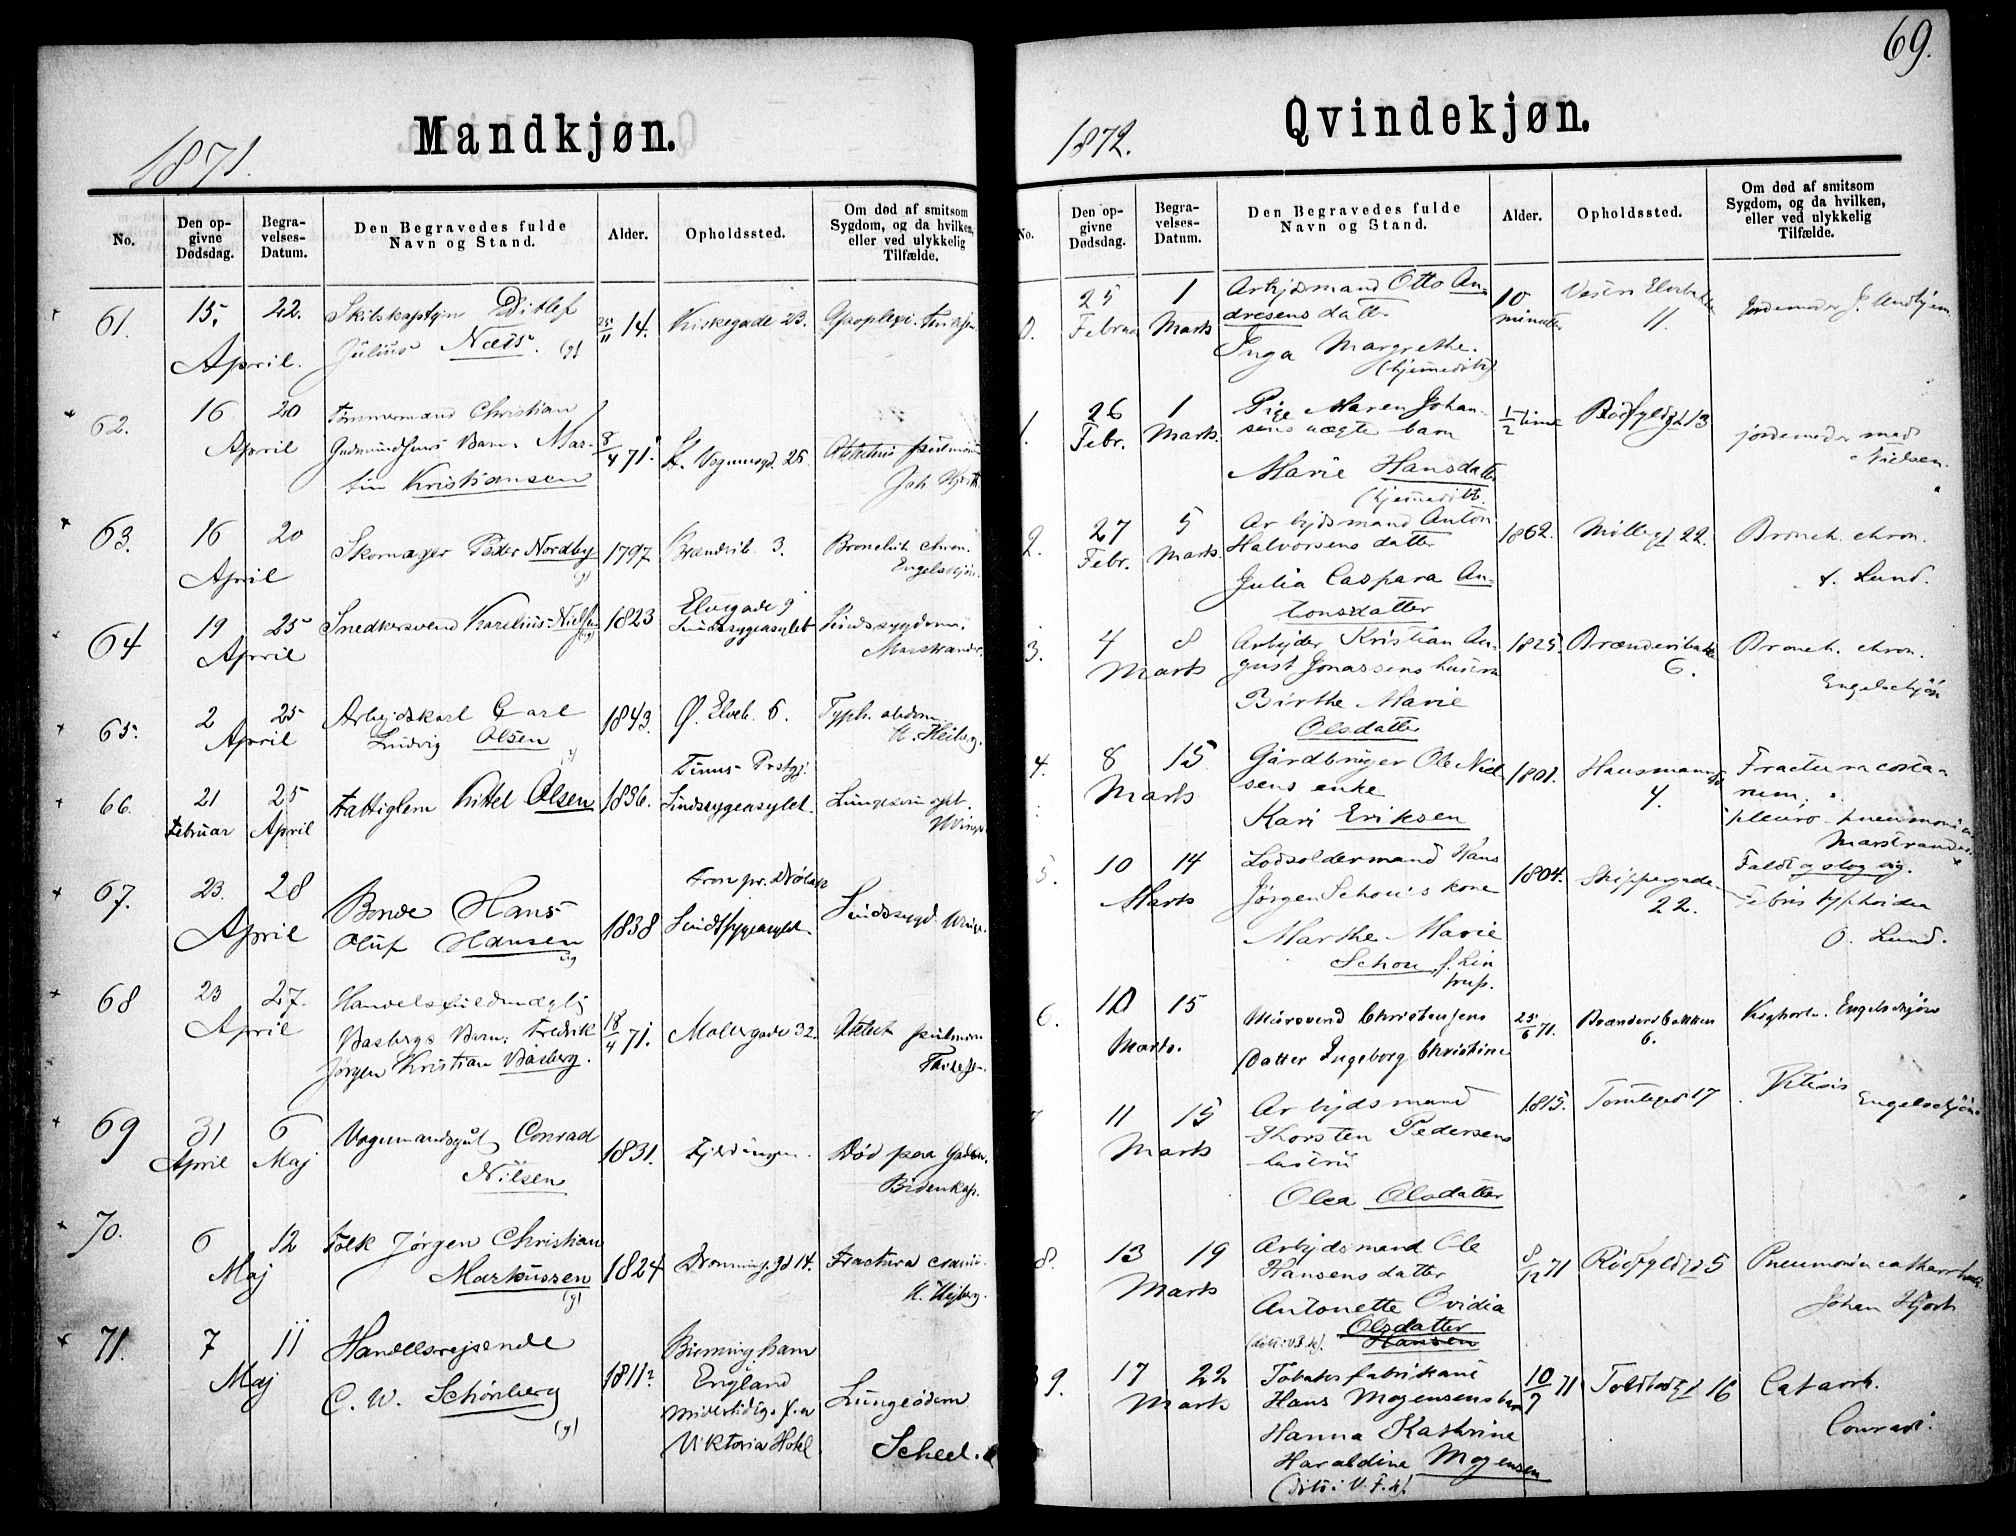 69.
Mandkjøn.
1871.
No.
Den op-
givne
Dødsdag.
Begra-
velses-
Datum.
Den Begravedes fulde
Navn og Stand.
Alder.
Opholdssted.
Om død af smitsom
Sygdom, og da hvilken,
eller ved ulykkelig
Tilfælde.
61. 15. April. 22.
Ditlef
Julius Næss. (g)
14. Kirkegade 23. Apoplexi.
62. 16 April 20
Tømmermand Christian
Gudmundsens Barn. Mar-
tin Kristiansen
8/4 71. St. Vognmgd. 25.
63. 16 April 20
Skomager Peder Nordby (g)
1797. 3. Bronchit. chron.
Engelskjøn.
64 19 April 25
Snedkersvend Karelius Nielsen
1823 Elvegade 9
Sindssygeasylet Sindssygdom.
Marstrander.
65. 2 April 25
Arbejdskarl Carl
Ludvig Olsen
1843. Ø. Elveb. 6. Typh. abdom.
H. Heiberg.
66. 21 Februar 25 April
Fattiglem Kittel Olsen
1836. Sindssygeasylet.
Winge
67. 23. April 28
Bonde Hans
Oluf Hansen
ug
1838 Fron pr. Drøbak
Sindssygeasylet. Sindssygd. Winge.
68 23 April 27.
Basbergs Barn. Fredrik
Jørgen Kristian Basberg.
18/4 71. Møllergade 32.
69 31 April 6 Maj
Vognmandsgut Conrad
Nilsen
1831. Fjerdingen. Død paa Gaden.
Bidenkap.
70. 6 Maj 12
Tolk Jørgen Christian
Markussen (g)
1824 Dronning.gd 14. Fractura cranii.
H. Heiberg.
71. 7 Maj 11
Handelsrejsende
C. W. Schønberg (g)
1811? Birmingham
England
midlertidig.
Viktoria Hotel. Lungeødem
Scheel.
1872.
Qvindekjøn.
No.
Den op-
givne
Dødsdag.
Begra-
velses-
Datum.
Den Begravedes fulde
Navn og Stand.
Alder.
Opholdssted.
Om død af smitsom
Sygdom, og da hvilken,
eller ved ulykkelig
Tilfælde.
0. 25 Februar 1 Marts
Arbejdsmand Otto An-
dresens datter
Inga Margrethe.
(hjemmedøbt)
10 minutter 11.
1. 26 Febr. 1 Marts.
Pige Maren Johan-
sens uægte barn
Marie Hansdatter
(hjemmedøbt.
1/2 time Rødfyldgd 13 jordemoder mad
Nielsen.
2. 27 Febr. 5 Marts.
Arbejdsmand Anton
Halvorsens datter
Julia Caspara An-
tonsdatter
1862. Møllegd 22. Bronch. chron.
A. Lund.
3. 4 Marts 8
Arbejder Kristian Au-
gust Jonassens hustru
Birthe Marie
Olsdatter
1825. Brænderibakken
6. Bronch. chron.
Engelschjøn
4. 8 Marts 15
Gårdbruger Ole Niel-
sens enke
Kari Eriksen
1801. Hausmannsgd
4. Fractura costa-
rum,
pleuro-pneumonien
Marstrander
Faldt og slog sig.
5. 10 Marts 14
Lodsoldermand Hans
Jørgen Schou's kone
Marthe Marie
Schou f. Lin
trup.
1804. Skippergade
22. Febris typhoidea
O. Lund.
6. 10 Marts. 15
Murersvend Christensens
Datter Ingeborg Christine
25/6 71. Brænderibakken
6. Kighoste. Engelschjøn
7 11 Marts 15
Arbejdsmand
Thorsten Pedersens
hustru
Olea Olsdatter
1815. Tomtegd 17 Ftisis
Engelschjøn
8. 13 Marts 19
Arbejdsmand Ole
Hansens datter
Antonette Ovidia
Olsdatter
Hansen
8/12 71 Rødfyldgd 5 Pneumonia catharrhalis
Johan Hjort
9. 17 Marts 22
Tobaksfabrikant
Hans Mogensens barn
Hanna Kathrine
Haraldine Mogensen
(døbt: V. F. k).
10/9 71 Toldbodgd 16 Catarrh.
Conradi.